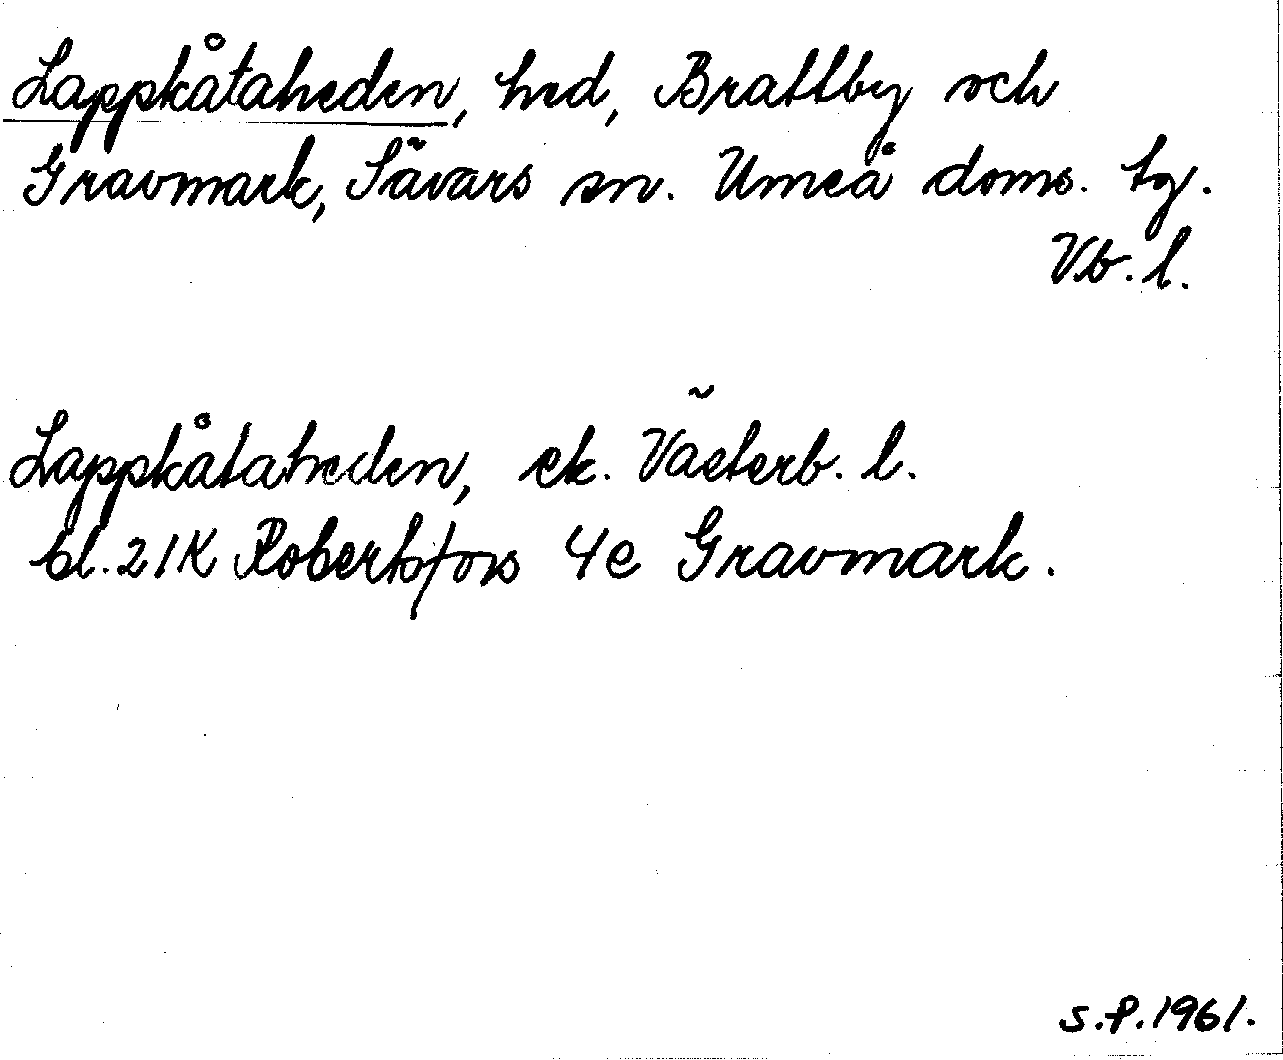 Lappkåtaheden, hed, Brattby och
Gravmark, Sävars sn. Umeå doms. tg.
Vb. l.
Lappkåtaheden, ek. Västerb. l.
bl. 21K Robertsfors 4c Gravmark.
S.P. 1961.